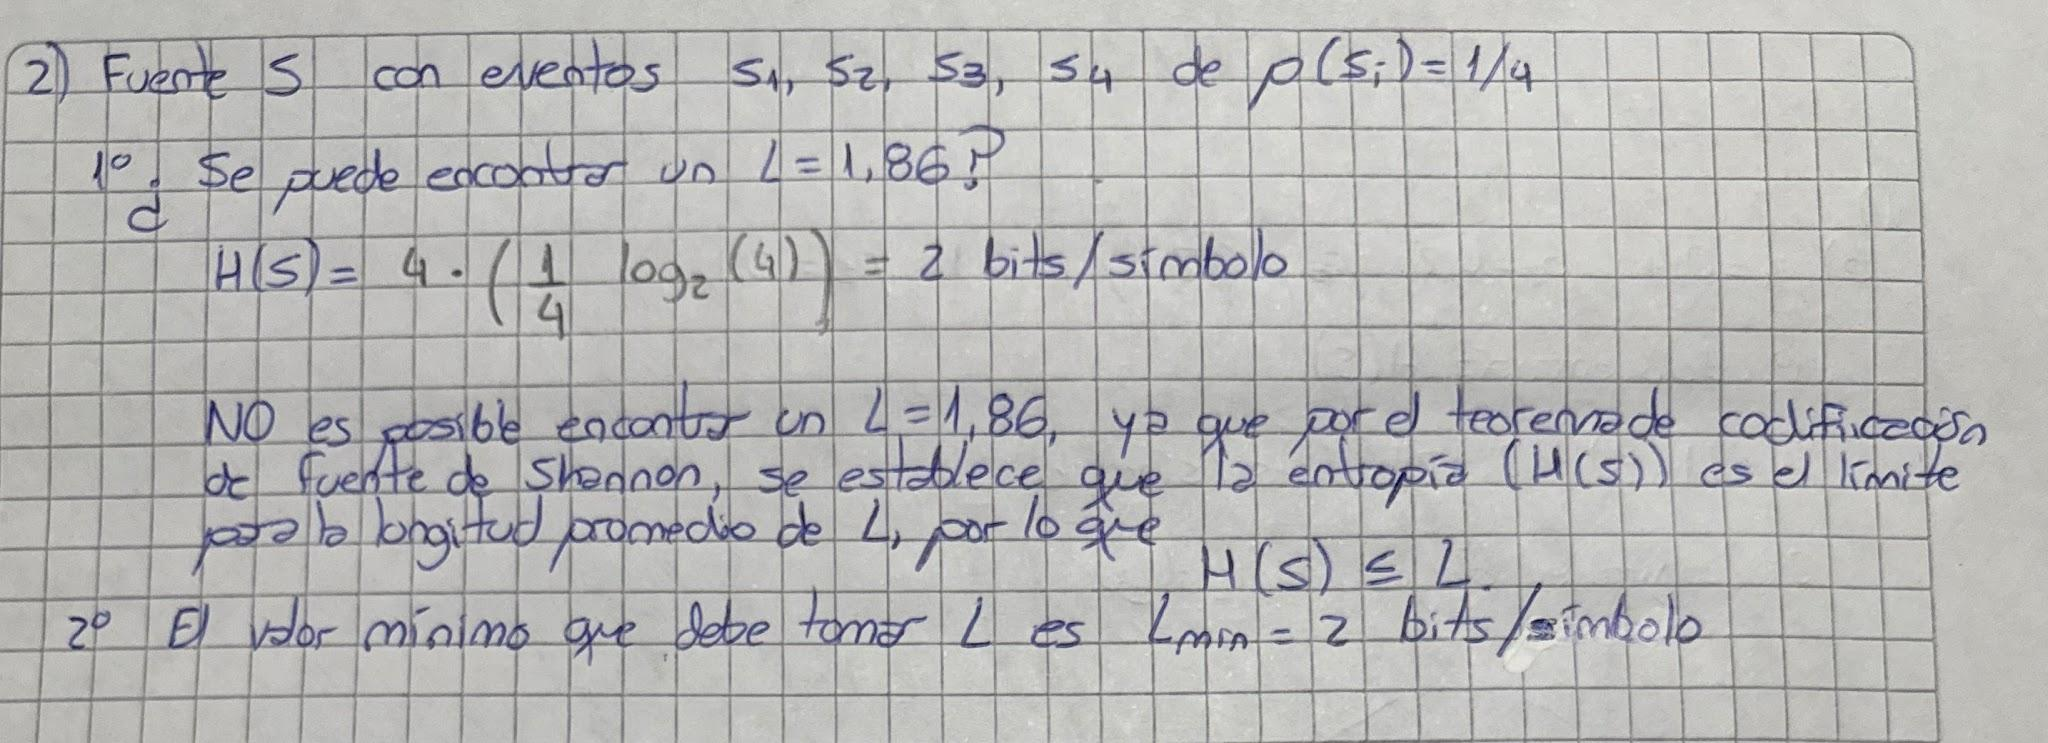 2) Fuente S con eventos s1, s2, s3, s4 de p(si)=1/4
1º ¿Se puede encontrar un L=1,86?
H(S)= 4·(1/4 log2 (4)) = 2 bits/símbolo
NO es posible encontrar un L=1,86, ya que por el teorema de codificación
de fuente de Shannon, se establece que la entropía (H(S)) es el límite
para la longitud promedio de L, por lo que
H(S) ≤ L.
2º El valor mínimo que debe tomar L es Lmin = 2 bits/símbolo